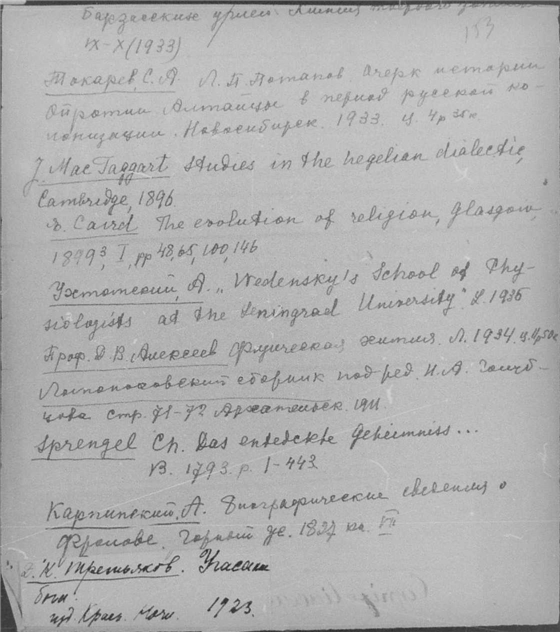 Барзасские угли. Химия твердого топлива
IX-X (1933)
153
Токарев, С.А. Л.П. Потапов, Очерк истории
Ойротии Алтайцы в период русской ко-
лонизации. Новосибирск. 1933. ц. 4р 35к.
J. Mac Taggart Studies in the hegelian dialectic,
Cambridge, 1896
E. Caird The evolution of religion, Glasgow,
1899³, I, pp 48, 65, 100, 146
Ухтомский, А. „Wedensky's School of Phy-
siologists at the Leningrad University". L. 1935
Проф. Д.В. Алексеев Физическая химия. Л. 1934. ц.
Ломоносовский сборник под ред. Н.А. Голуб-
цова стр. 71-72 Архангельск. 1911
Sprengel Ch. Das entdeckte Geheimniss...
B. 1793. p. 1-443.
Карпинский, А. Биографические сведения о
Фролове. Горный ж. 1827 кн. VII
К. Третьяков. Угасшие
боги.
изд. Красн. Ночи. 1923.